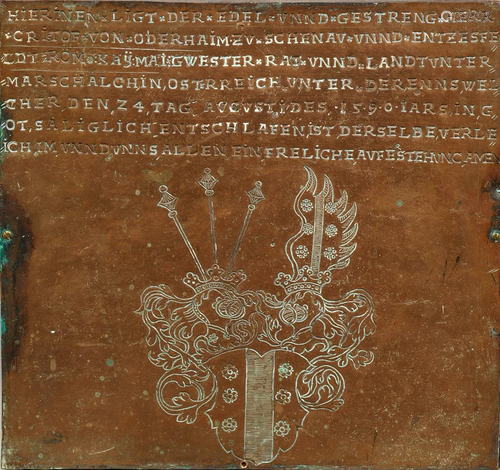 HIERINEN · LIGT · DER · EDEL · VNND · GESTRENG
CRISTOF · VON · ODERHAIM · ZV · SCHENAV · VNND · ENTZESFE
LDT · RÖM · KAY · MAI · GWESTER · RAT · VNND · LANDTVNTER
MARSCHALCH IN, OSTRREICH VNTER, DER ENNS, WEL
CHER DEN, 24, TAG, AVGVSTI DES, 1590, IARS, IN, G
OT, SÄLIGLICH ENTSCHLAFEN, IST, DER SELBE, VERLE
ICH IM VNND VNNS ALLEN, EIN FRELICHE AVFESTEHVNG, AMEN